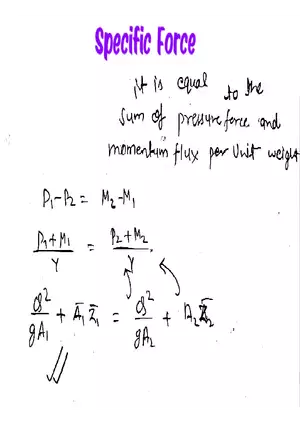 Specific Force
it is equal to the
sum of pressure force and
momentum flux per unit weight
P₁-P₂ = M₂-M₁
(P₁+M₁)/γ = (P₂+M₂)/γ
Q²/gA₁ + A₁Z̄₁ = Q²/gA₂ + A₂Z̄₂